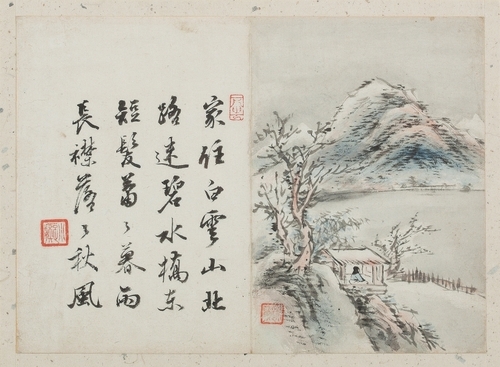 家住白雲山北
路迷碧水橋東
短髮蕭〻暮雨
長襟落〻秋風